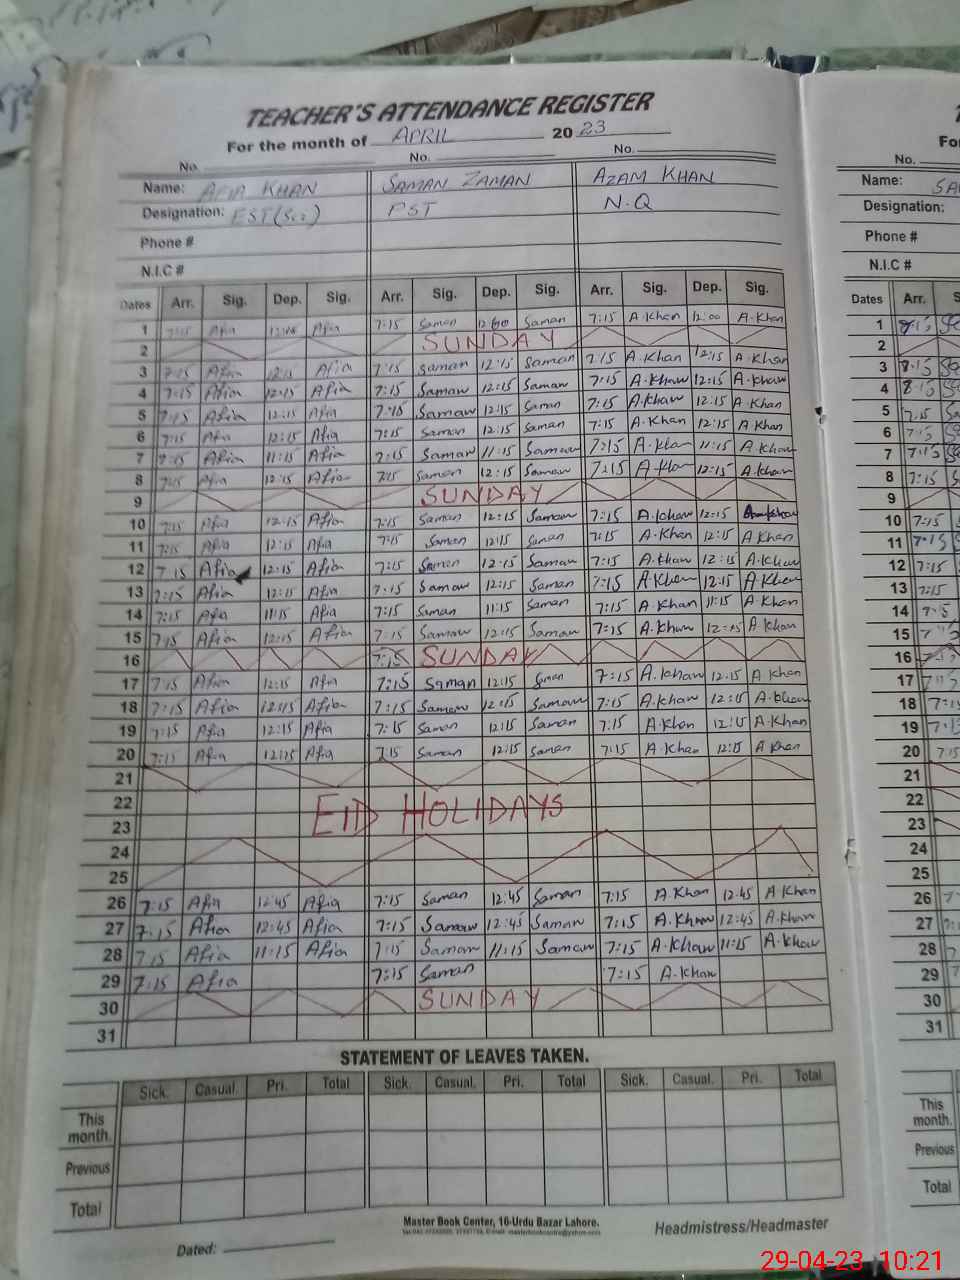 TEACHER'S ATTENDANCE REGISTER
For the month of APRIL 20 23
No. No. No.
Name: AFIA KHAN SAMAN ZAMAN AZAM KHAN
Designation: EST(Sci) PST N.Q
Phone #
N.I.C #
Dates Arr. Sig. Dep. Sig. Arr. Sig. Dep. Sig. Arr. Sig. Dep. Sig.
1 7:15 Afia Afia 7:15 Saman Saman 7:15 A.Khan 12:00 A.Khan
2 SUNDAY
3 7:15 Afia 12:15 Afia 7:15 Saman 12:15 Saman 7:15 A.Khan 12:15 A.Khan
4 7:15 Afia 12:15 Afia 7:15 Saman 12:15 Saman 7:15 A.Khan 12:15 A.Khan
5 7:15 Afia 12:15 Afia 7:15 Saman 12:15 Saman 7:15 A.Khan 12:15 A.Khan
6 7:15 Afia 12:15 Afia 7:15 Saman 12:15 Saman 7:15 A.Khan 12:15 A.Khan
7 7:15 Afia 11:15 Afia 7:15 Saman 11:15 Saman 7:15 A.Khan 11:15 A.Khan
8 7:15 Afia 12:15 Afia 7:15 Saman 12:15 Saman 7:15 A.Khan 12:15 A.Khan
9 SUNDAY
10 7:15 Afia 12:15 Afia 7:15 Saman 12:15 Saman 7:15 A.Khan 12:15
11 7:15 Afia 12:15 Afia 7:15 Saman 12:15 Saman 7:15 A.Khan 12:15 A Khan
12 7:15 Afia 12:15 Afia 7:15 Saman 12:15 Saman 7:15 A.Khan 12:15 A.Khan
13 7:15 Afia 12:15 Afia 7:15 Saman 12:15 Saman 7:15 A.Khan 12:15 A.Khan
14 7:15 Afia 11:15 Afia 7:15 Saman 11:15 Saman 7:15 A.Khan 11:15 A Khan
15 7:15 Afia 12:15 Afia 7:15 Saman 12:15 Saman 7:15 A.Khan 12:15 A Khan
16 7:15 SUNDAY
17 7:15 Afia 12:15 Afia 7:15 Saman 12:15 Saman 7:15 A.Khan 12:15 A Khan
18 7:15 Afia 12:15 Afia 7:15 Saman 12:15 Saman 7:15 A.Khan 12:15 A.Khan
19 7:15 Afia 12:15 Afia 7:15 Saman 12:15 Saman 7:15 A.Khan 12:15 A.Khan
20 7:15 Afia 12:15 Afia 7:15 Saman 12:15 Saman 7:15 A.Khan 12:15 A Khan
21
22 EID HOLIDAYS
23
24
25
26 7:15 Afia 12:45 Afia 7:15 Saman 12:45 Saman 7:15 A.Khan 12.45 A Khan
27 7:15 Afia 12:45 Afia 7:15 Saman 12:45 Saman 7:15 A.Khan 12:45 A.Khan
28 7:15 Afia 11:15 Afia 7:15 Saman 11:15 Saman 7:15 A.Khan 11:15 A.Khan
29 7:15 Afia 7:15 Saman 7:15 A.Khan
30 SUNDAY
31
STATEMENT OF LEAVES TAKEN.
Sick. Casual. Pri. Total Sick. Casual. Pri. Total Sick. Casual. Pri. Total
This month.
Previous
Total
Master Book Center, 16-Urdu Bazar Lahore.
Headmistress/Headmaster
Dated:
No.
Name:
Designation:
Phone #
N.I.C #
Dates Arr.
1
2
3
4
5 7:15
6 7:15
7 7:15
8 7:15
9
10 7:15
11 7:15
12 7:15
13 7:15
14
15
16
17
18
19
20 7:15
21
22
23
24
25
26
27
28
29
30
31
This month.
Previous
Total
29-04-23 10:21